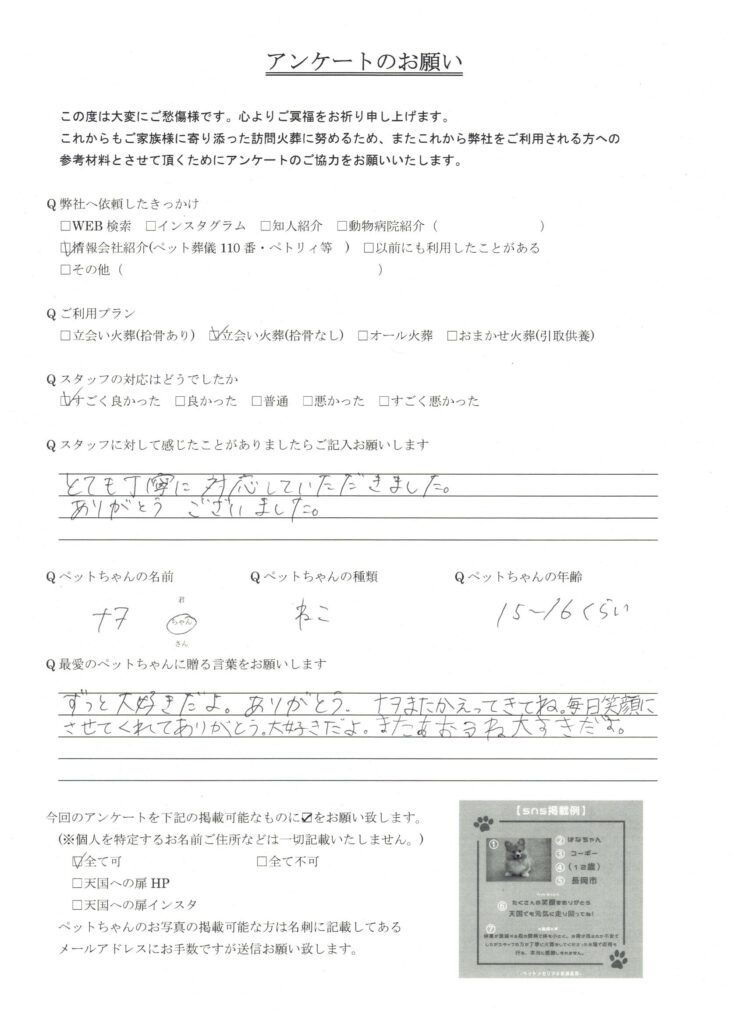 アンケートのお願い
この度は大変にご愁傷様です。心よりご冥福をお祈り申し上げます。
これからもご家族様に寄り添った訪問火葬に努めるため、またこれから弊社をご利用される方への
参考材料とさせて頂くためにアンケートのご協力をお願いいたします。
Q 弊社へ依頼したきっかけ
□WEB 検索 □インスタグラム □知人紹介 □動物病院紹介（ ）
☑情報会社紹介(ペット葬儀 110 番・ペトリィ等 ) □以前にも利用したことがある
□その他（ ）
Q ご利用プラン
□立会い火葬(拾骨あり) ☑立会い火葬(拾骨なし) □オール火葬 □おまかせ火葬(引取供養)
Q スタッフの対応はどうでしたか
☑すごく良かった □良かった □普通 □悪かった □すごく悪かった
Q スタッフに対して感じたことがありましたらご記入お願いします
とても丁寧に対応していただきました。
ありがとうございました。
Q ペットちゃんの名前 Q ペットちゃんの種類 Q ペットちゃんの年齢
君
ナヲ ちゃん ねこ 15〜16くらい
さん
Q 最愛のペットちゃんに贈る言葉をお願いします
ずっと大好きだよ。ありがとう。ナヲまたかえってきてね。毎日笑顔に
させてくれてありがとう。大好きだよ。またあおうね大すきだよ。
今回のアンケートを下記の掲載可能なものに☑をお願い致します。
(※個人を特定するお名前ご住所などは一切記載いたしません。)
☑全て可 □全て不可
□天国への扉 HP
□天国への扉インスタ
ペットちゃんのお写真の掲載可能な方は名刺に記載してある
メールアドレスにお手数ですが送信お願い致します。
【sns掲載例】
① ② ぽなちゃん
③ コーギー
④ （12歳）
⑤ 長岡市
⑥ たくさんの笑顔をありがとう
天国でも元気に走り回ってね！
⑦